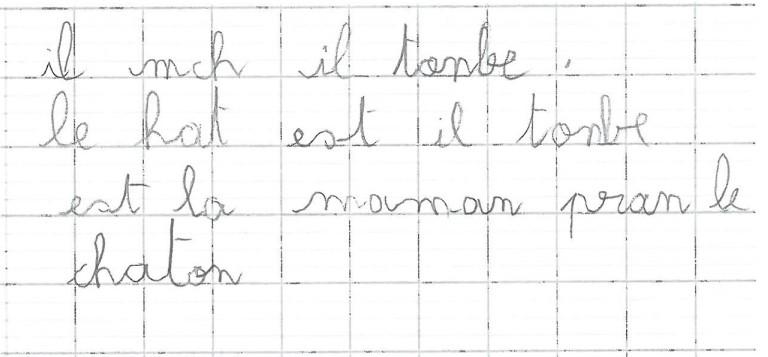 il mch il tonbe .
le hat est il tonbe
est la maman pran le
chaton